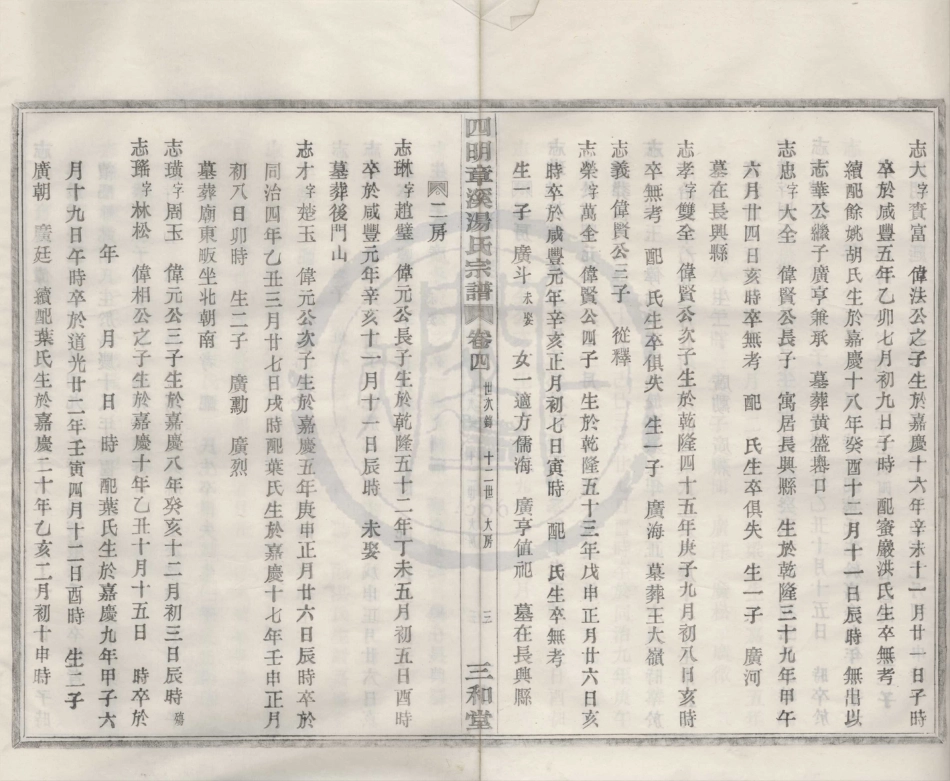 志大字賚富 偉法公之子生於嘉慶十六年辛未十一月廿一日子時
卒於咸豐五年乙卯七月初九日子時 配蜜巖洪氏生卒無考
續配餘姚胡氏生於嘉慶十八年癸酉十二月十一日辰時無出以
志華公繼子廣亨兼承 墓葬黃盛嶴口
志忠字大全 偉賢公長子 寓居長興縣 生於乾隆三十九年甲午
六月廿四日亥時卒無考 配 氏生卒俱失 生一子 廣河
墓在長興縣
志孝字雙全 偉賢公次子生於乾隆四十五年庚子九月初八日亥時
卒無考 配 氏生卒俱失 生一子 廣海 墓葬王大嶺
志義 偉賢公三子 從釋
志榮字萬全 偉賢公四子 生於乾隆五十三年戊申正月廿六日亥
時卒於咸豐元年辛亥正月初七日寅時 配 氏生卒無考
生一子 廣斗未娶 女一適方儒海 廣亨值祀 墓在長興縣
四明章溪湯氏宗譜 卷四 世次錄 十二世 大房 三 三和堂
二房
志琳字趙璧 偉元公長子生於乾隆五十二年丁未五月初五日酉時
卒於咸豐元年辛亥十一月十一日辰時 未娶
墓葬後門山
志才字楚玉 偉元公次子生於嘉慶五年庚申正月廿六日辰時卒於
同治四年乙丑三月廿七日戌時配葉氏生於嘉慶十七年壬申正月
初八日卯時 生二子 廣勳 廣烈
墓葬廟東畈坐北朝南
志璜字周玉 偉元公三子生於嘉慶八年癸亥十二月初三日辰時
志瑤字林松 偉相公之子生於嘉慶十年乙丑十月十五日 時卒於
年 月 日 時 配葉氏生於嘉慶九年甲子六
月十九日午時卒於道光廿二年壬寅四月十二日酉時 生二子
廣朝 廣廷 續配葉氏生於嘉慶二十年乙亥二月初十申時